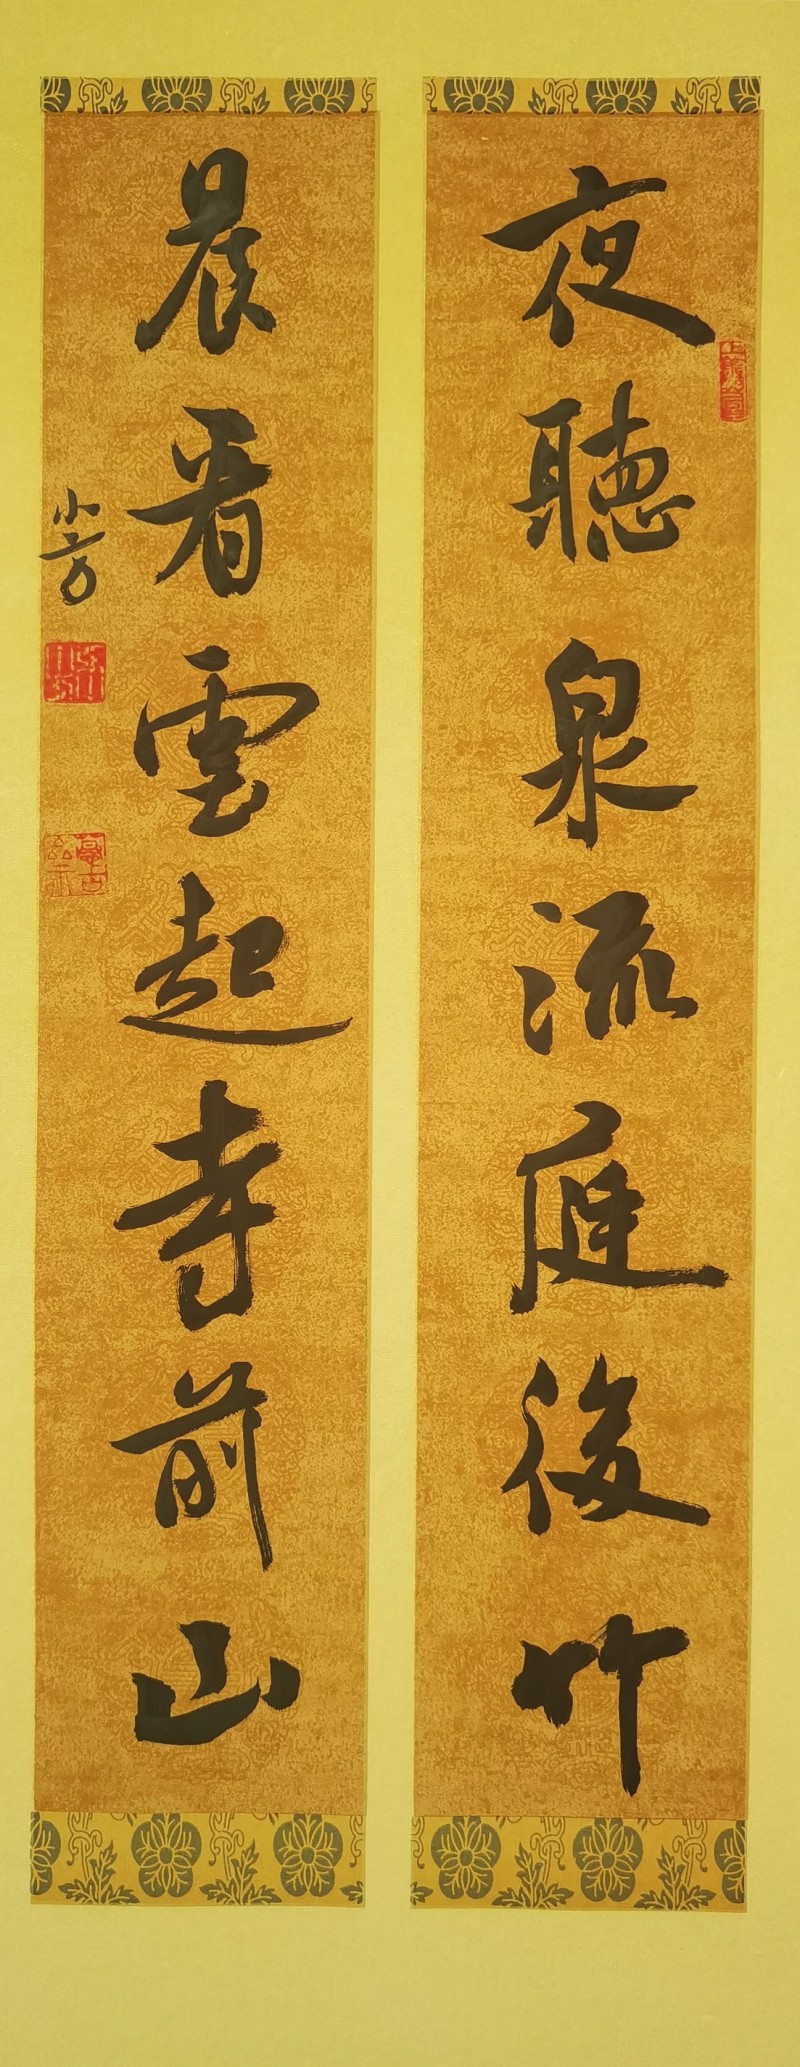 夜聽泉流庭後竹
晨看雲起寺前山
小芳